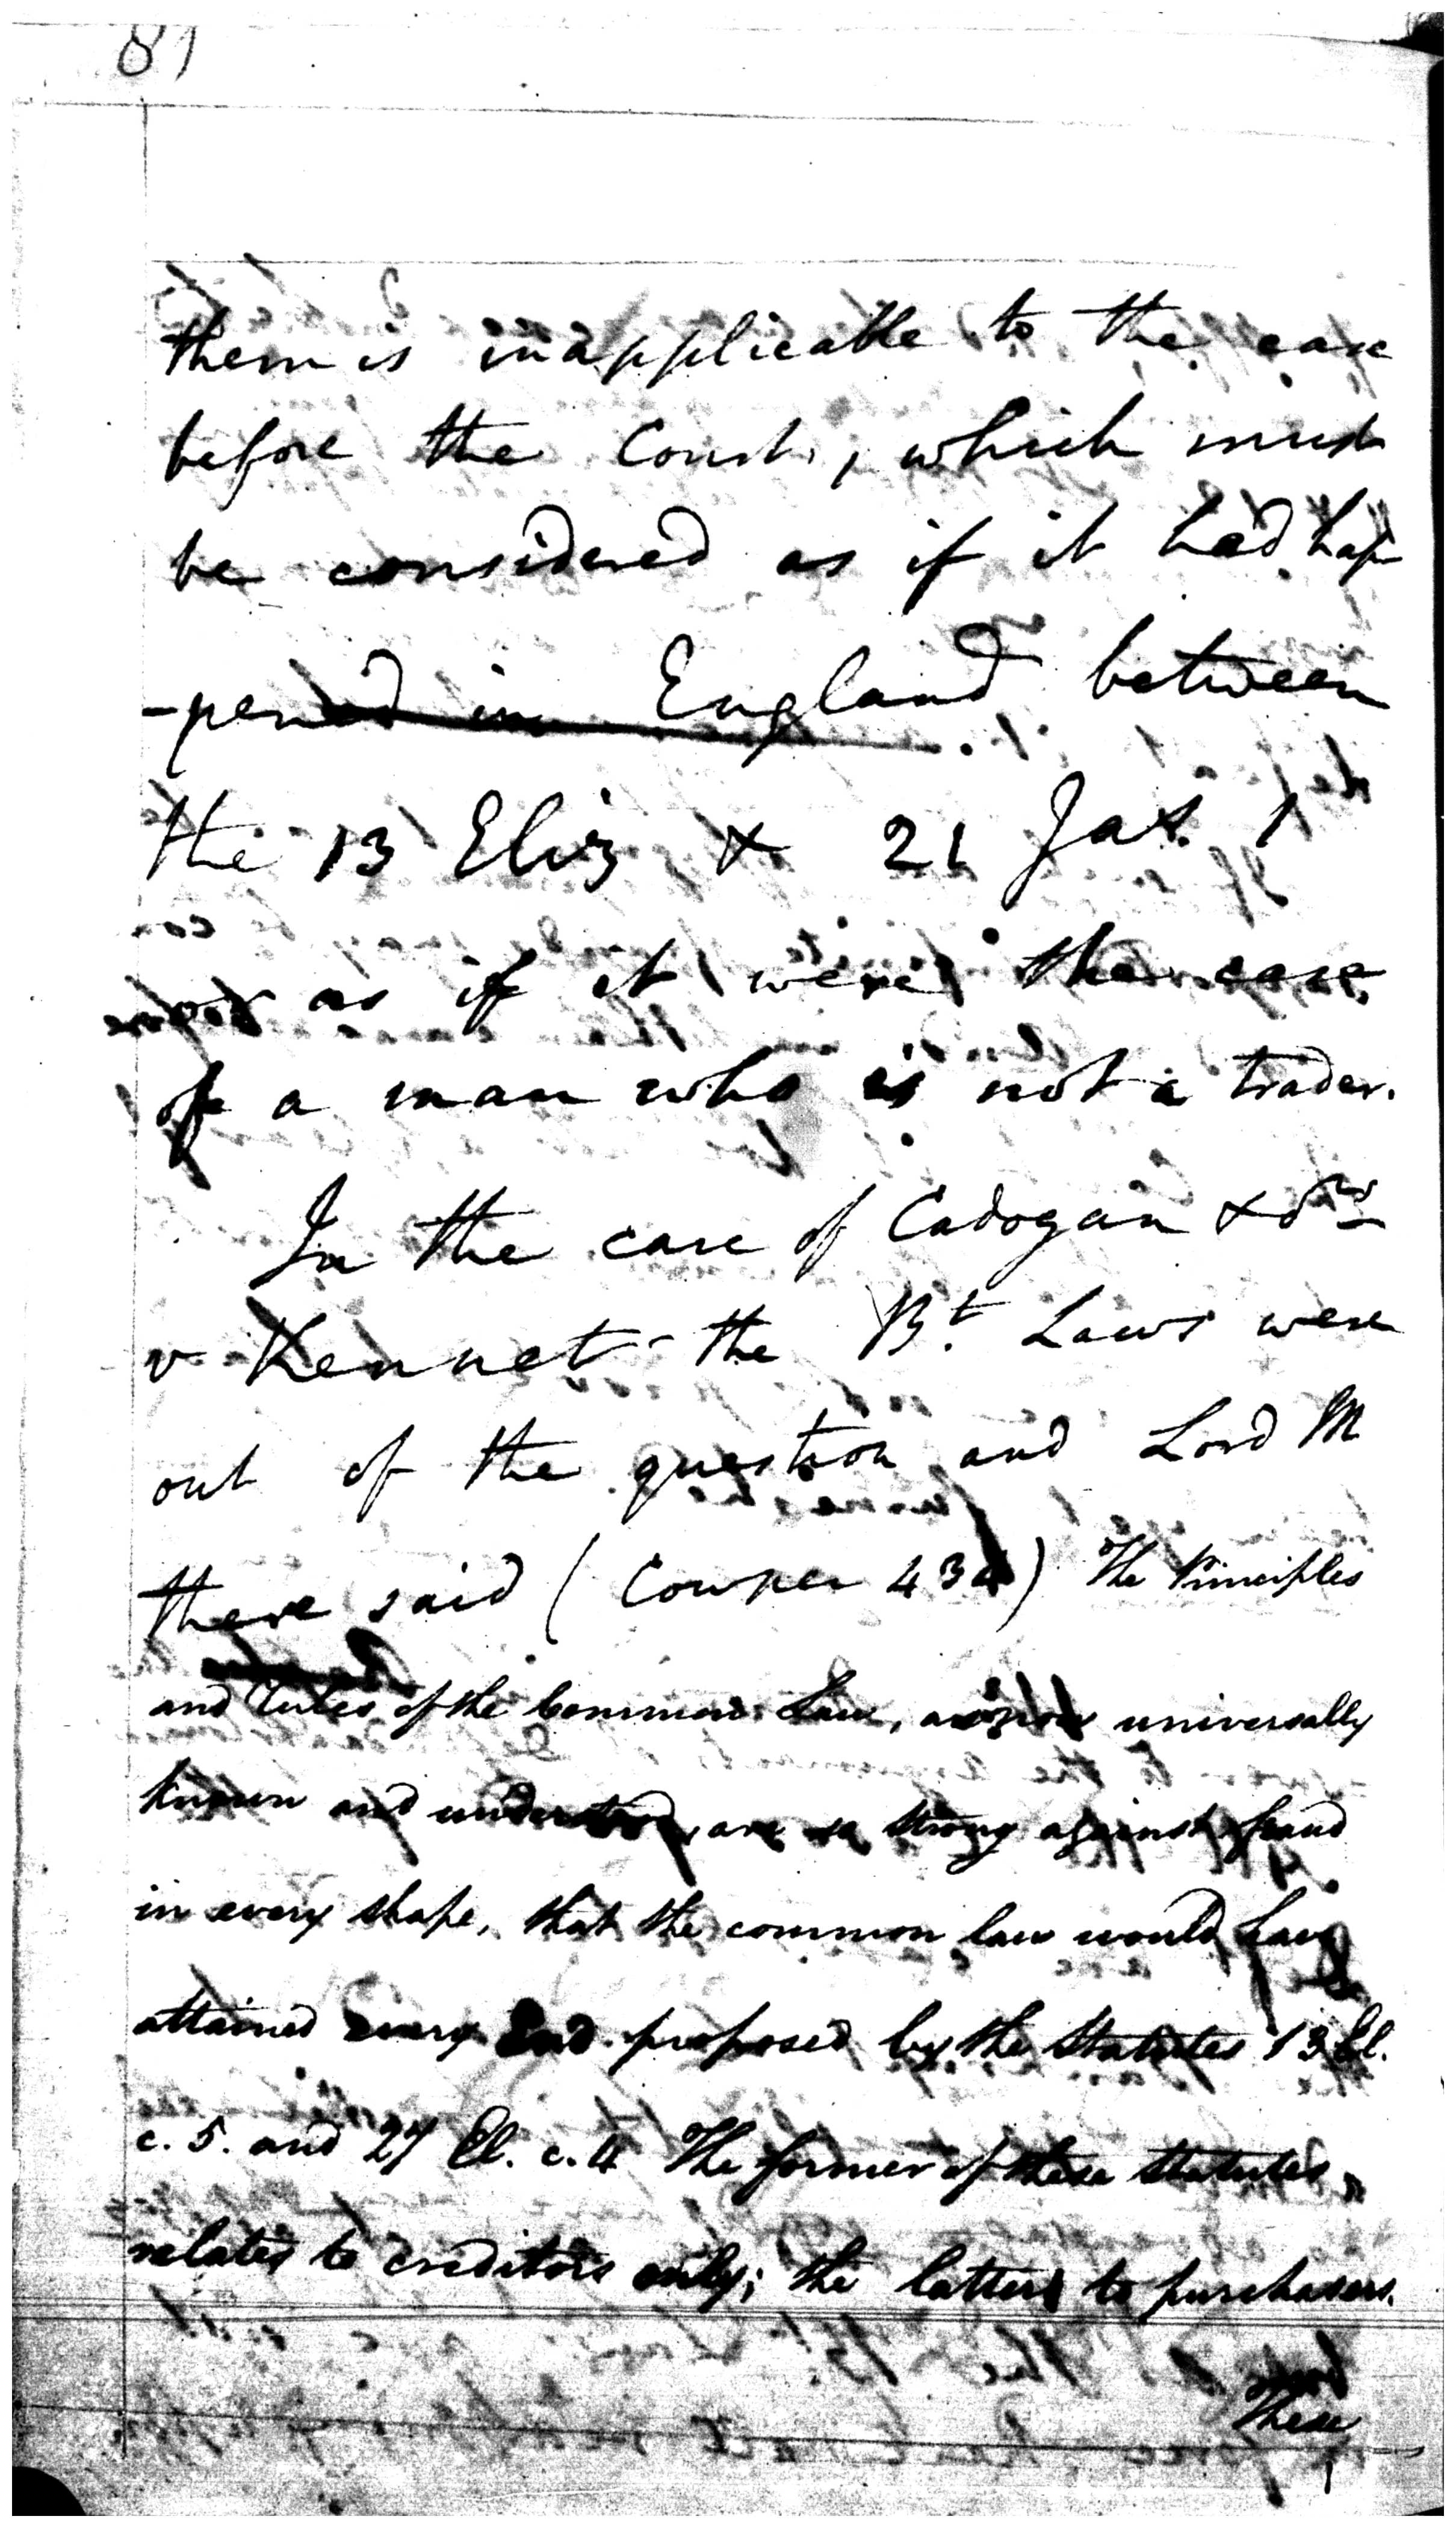 81
them is inapplicable to the case
before the Court, which must
be considered as if it had hap
-pened in England between
the 13 Eliz & 21 Jas. 1
or as if it were the case
of a man who is not a trader.
In the case of Cadogan & ors
v Kennet the Bt. Laws were
out of the question and Lord M
there said (Cowper 434) The Principles
and rules of the Common Law, as now universally
known and understood, are so strong against fraud
in every shape, that the common law would have
attained every End proposed by the Statutes 13 El.
c. 5. and 27 El. c. 4 The former of these statutes
relates to creditors only; the latter to purchasers.
These